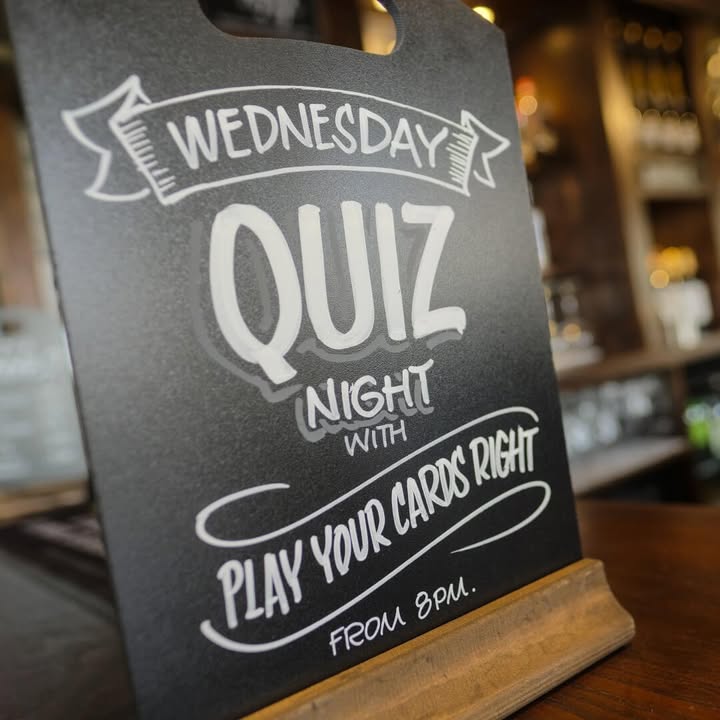 WEDNESDAY
QUIZ
NIGHT
WITH
PLAY YOUR CARDS RIGHT
FROM 8PM.